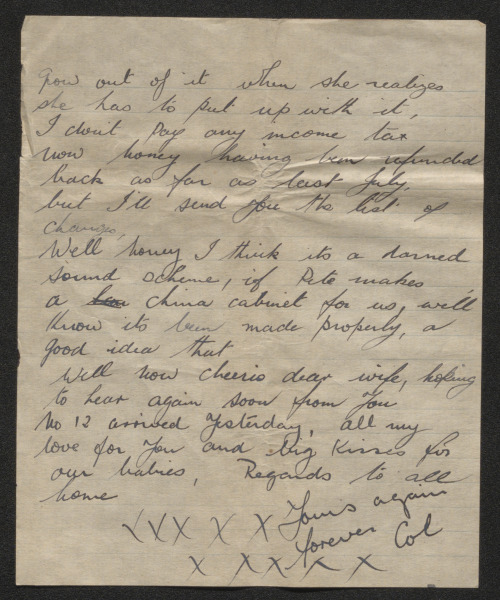 grow out of it when she realizes
she has to put up with it,
I don't pay any income tax
now honey having been refunded
back as far as last July,
but I'll send you the list of
changes,
Well honey I think its a darned
sound scheme, if Pete makes
a china cabinet for us, we'll
know its been made properly, a
good idea that
Well now cheerio dear wife, hoping
to hear again soon from you
No 12 arrived yesterday, all my
love for you and big kisses for
our babies, Regards to all
home
Yours again
forever Col
X X X X X
X X X X X